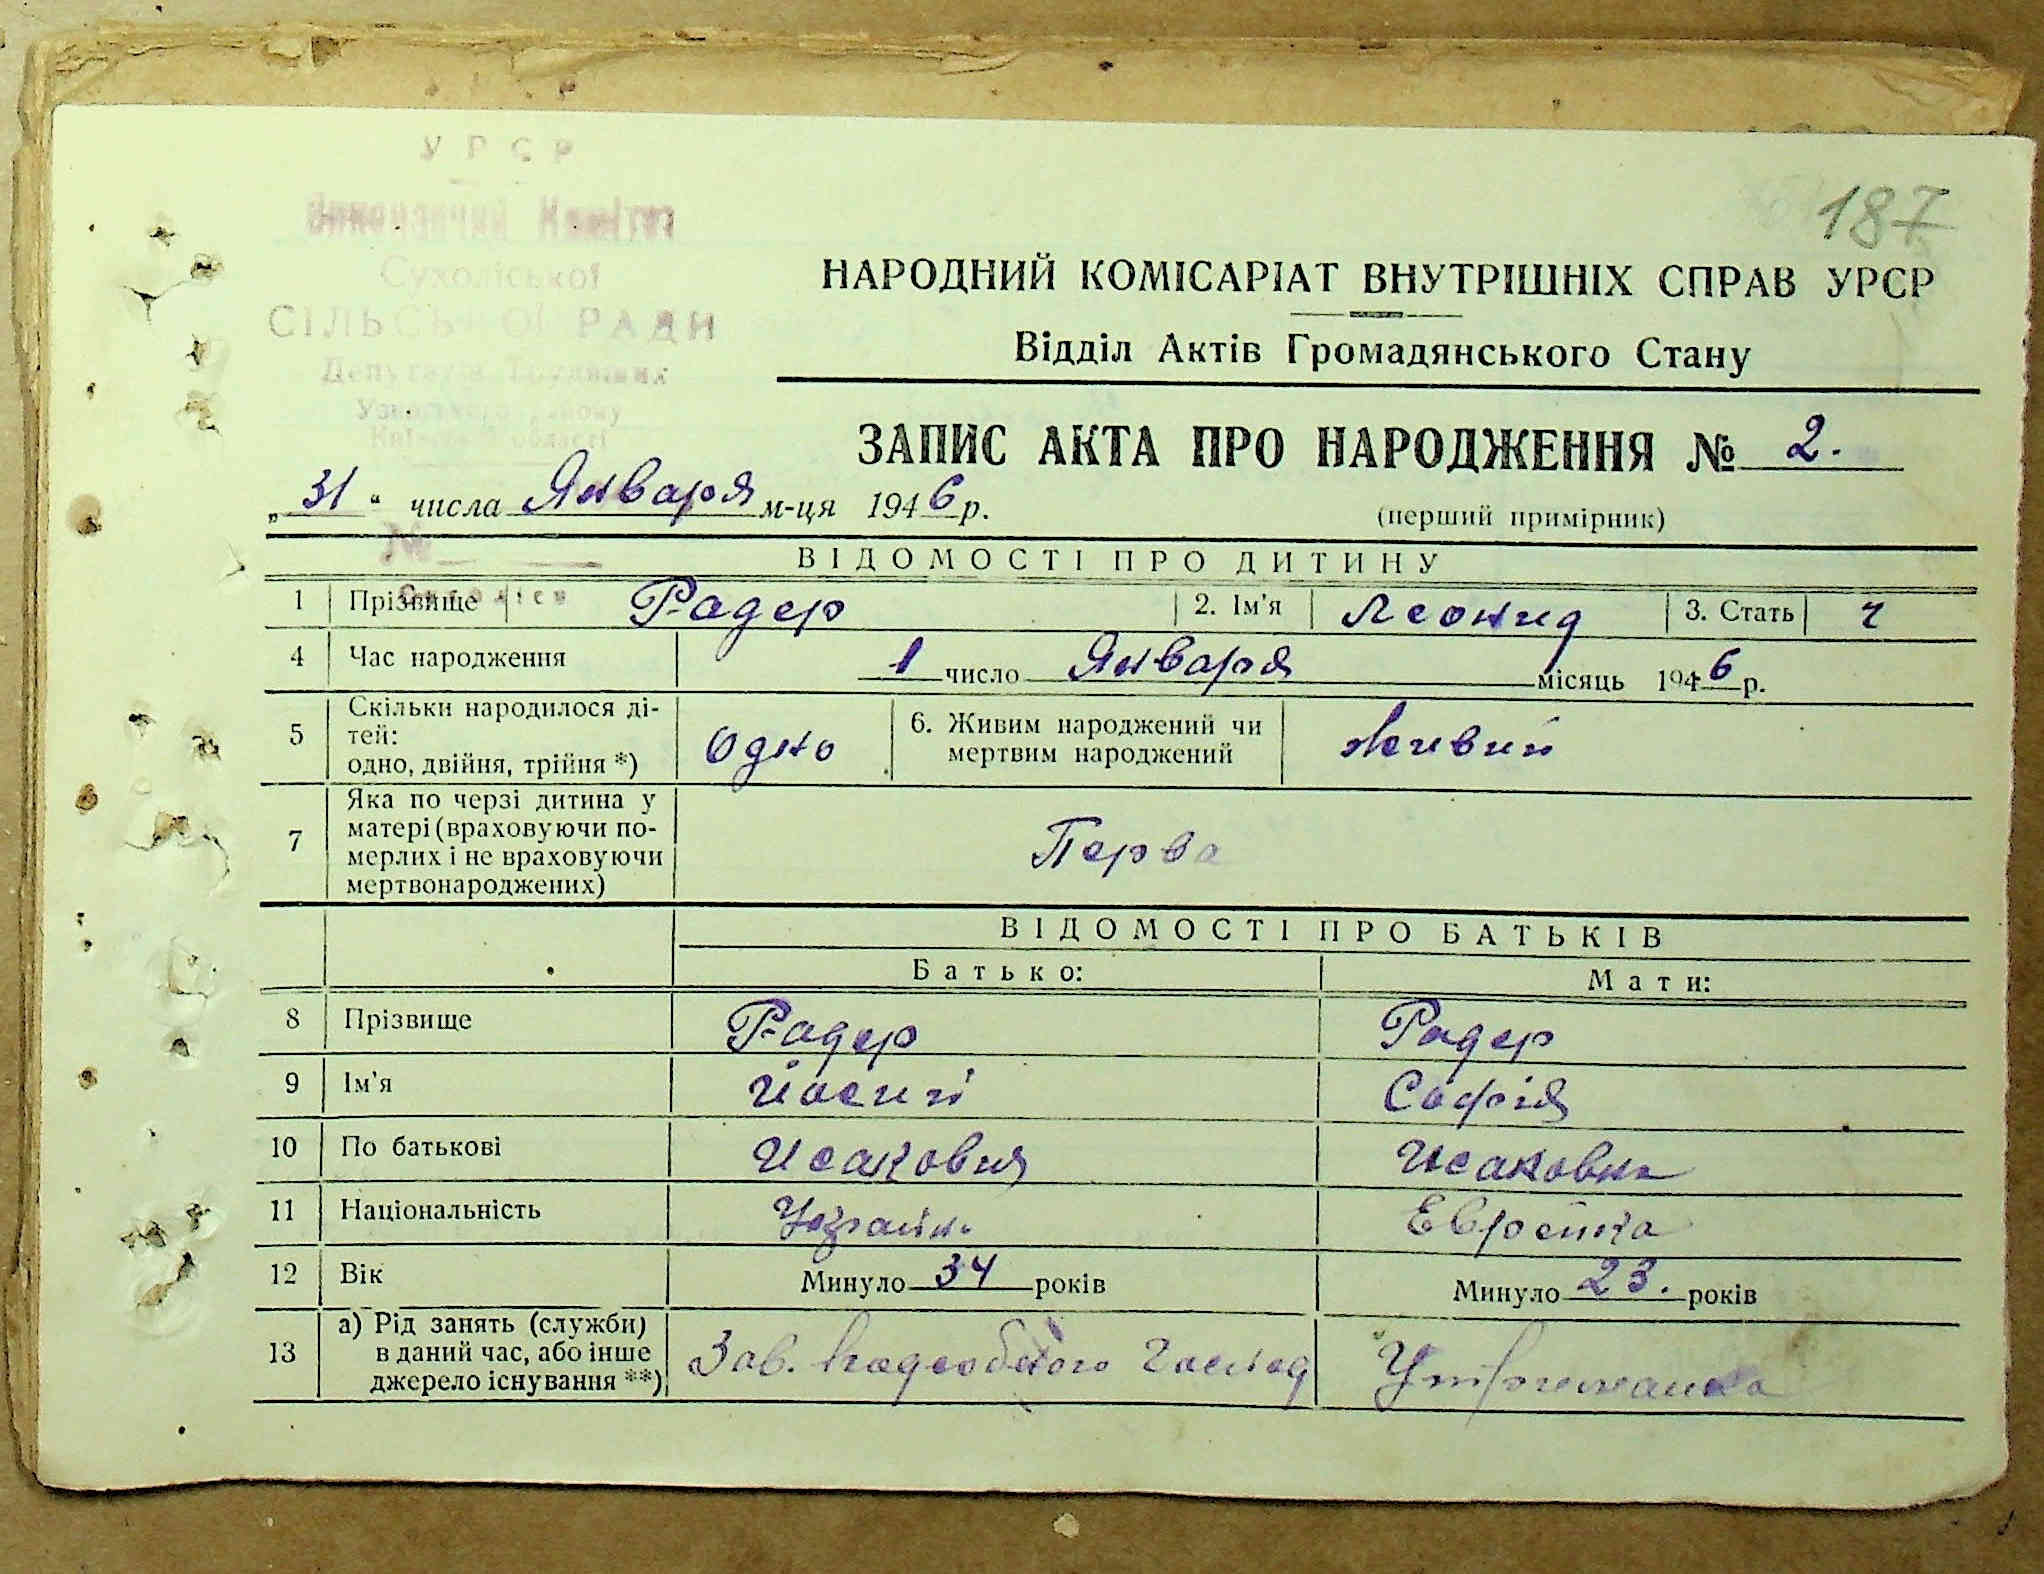 187
УРСР
Виконавчий Комітет
Сухоліської
СІЛЬСЬКОЇ РАДИ
Депутатів Трудящих
Узинського району
Київської області
НАРОДНИЙ КОМІСАРІАТ ВНУТРІШНІХ СПРАВ УРСР
Відділ Актів Громадянського Стану
ЗАПИС АКТА ПРО НАРОДЖЕННЯ № 2.
„31“ числа Января м-ця 1946 р.
(перший примірник)
№
ВІДОМОСТІ ПРО ДИТИНУ
1 Прізвище Радер 2. Ім'я Леонид 3. Стать ч
4 Час народження 1 число Января місяць 1946 р.
5 Скільки народилося ді-
тей:
одно, двійня, трійня *) Одно 6. Живим народжений чи
мертвим народжений Живий
7 Яка по черзі дитина у
матері (враховуючи по-
мерлих і не враховуючи
мертвонароджених) Перва
ВІДОМОСТІ ПРО БАТЬКІВ
Батько: Мати:
8 Прізвище Радер Радер
9 Ім'я Йосип Софія
10 По батькові Исакович Исаковна
11 Національність Україн. Еврейка
12 Вік Минуло 34 років Минуло 23. років
13 а) Рід занять (служби)
в даний час, або інше
джерело існування **) Зав. Утриманка